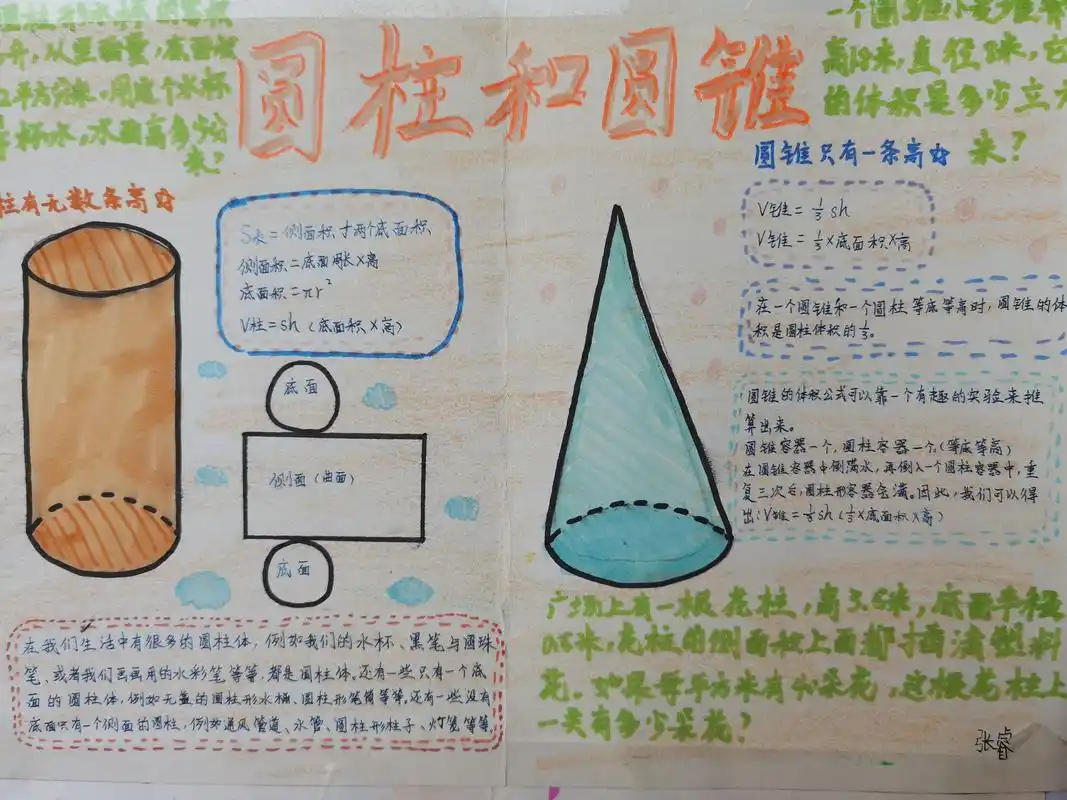 圆柱和圆锥
升，从里面量，底面
平方分米，用这个水杯
杯水，水面高多少分
米？
高18米，直径8米，它
的体积是多少立方
米？
柱有无数条高
圆锥只有一条高
S表=侧面积+两个底面积
侧面积=底面周长×高
底面积=πr²
V柱=sh（底面积×高）
底面
侧面（曲面）
底面
V锥=⅓sh
V锥=⅓×底面积×高
在一个圆锥和一个圆柱等底等高时，圆锥的体
积是圆柱体积的⅓。
圆锥的体积公式可以靠一个有趣的实验来推
算出来。
圆锥容器一个，圆柱容器一个（等底等高）
在圆锥容器中倒满水，再倒入一个圆柱容器中，重
复三次后，圆柱形容器会满。因此，我们可以得
出：V锥=⅓sh（⅓×底面积×高）
在我们生活中有很多的圆柱体，例如我们的水杯、黑笔与圆珠
笔、或者我们画画用的水彩笔等等，都是圆柱体，还有一些只有一个底
面的圆柱体，例如无盖的圆柱形水桶、圆柱形笔筒等等，还有一些没有
底面只有一个侧面的圆柱，例如通风管道、水管、圆柱形柱子、灯笼等等
广场上有一根花柱，高3.5米，底面半径
0.5米，花柱的侧面和上面都插满塑料
花。如果每平方米有40朵花，这根花柱上
一共有多少朵花？
张睿